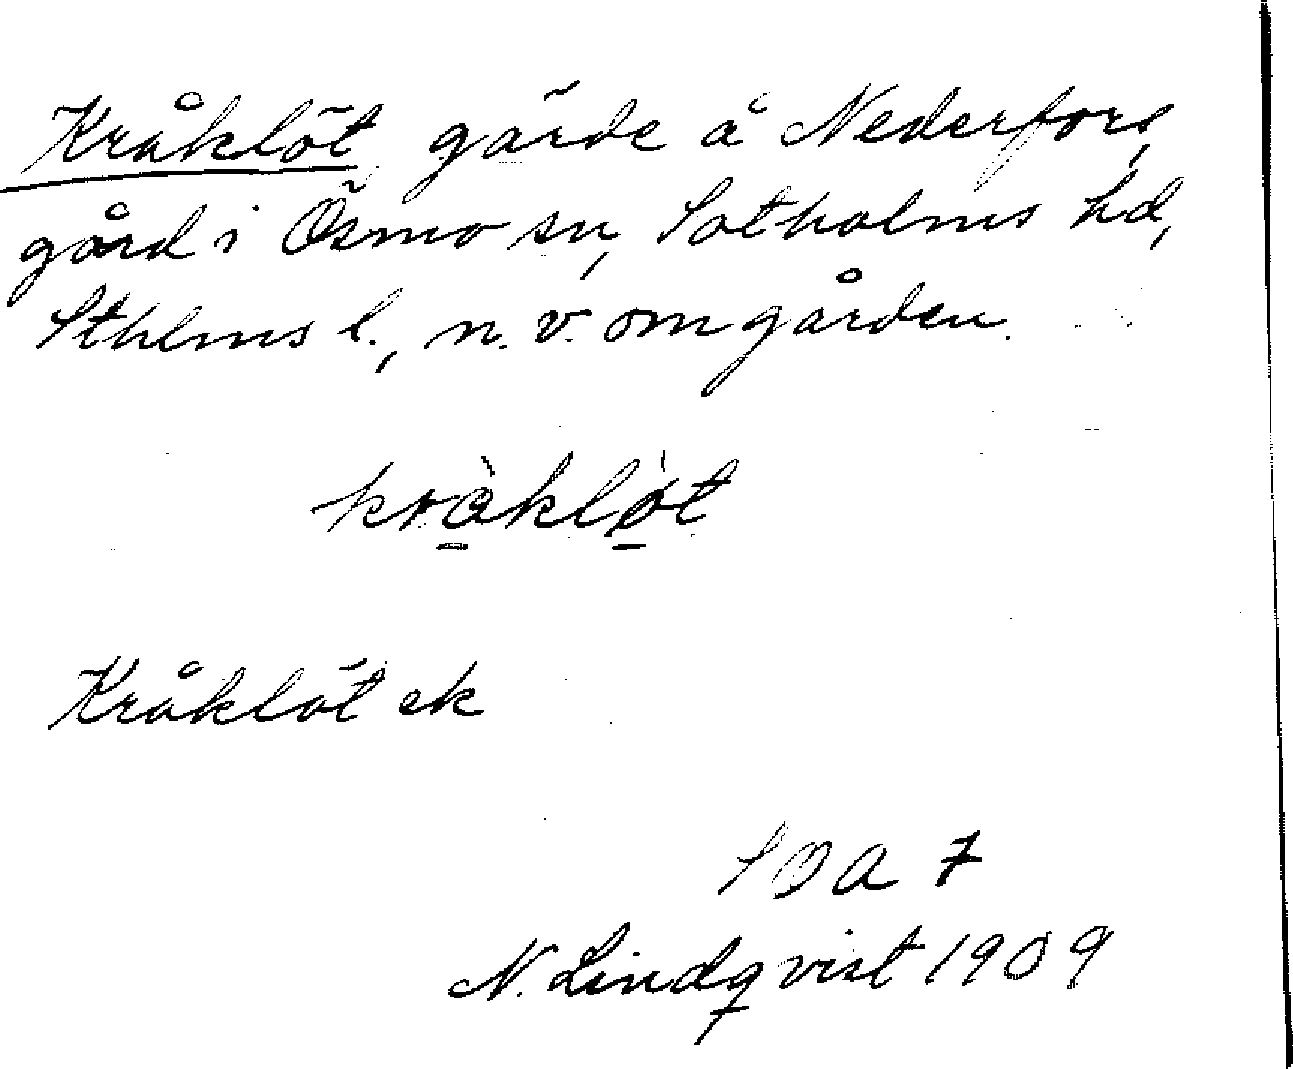 Kråklöt, gärde å Nederfors,
gård i Ösmo sn, Sotholms hd,
Sthlms l., n. v. om gården.
kròklø̀t
Kråklöt ek
SOA 7
N. Lindqvist 1909